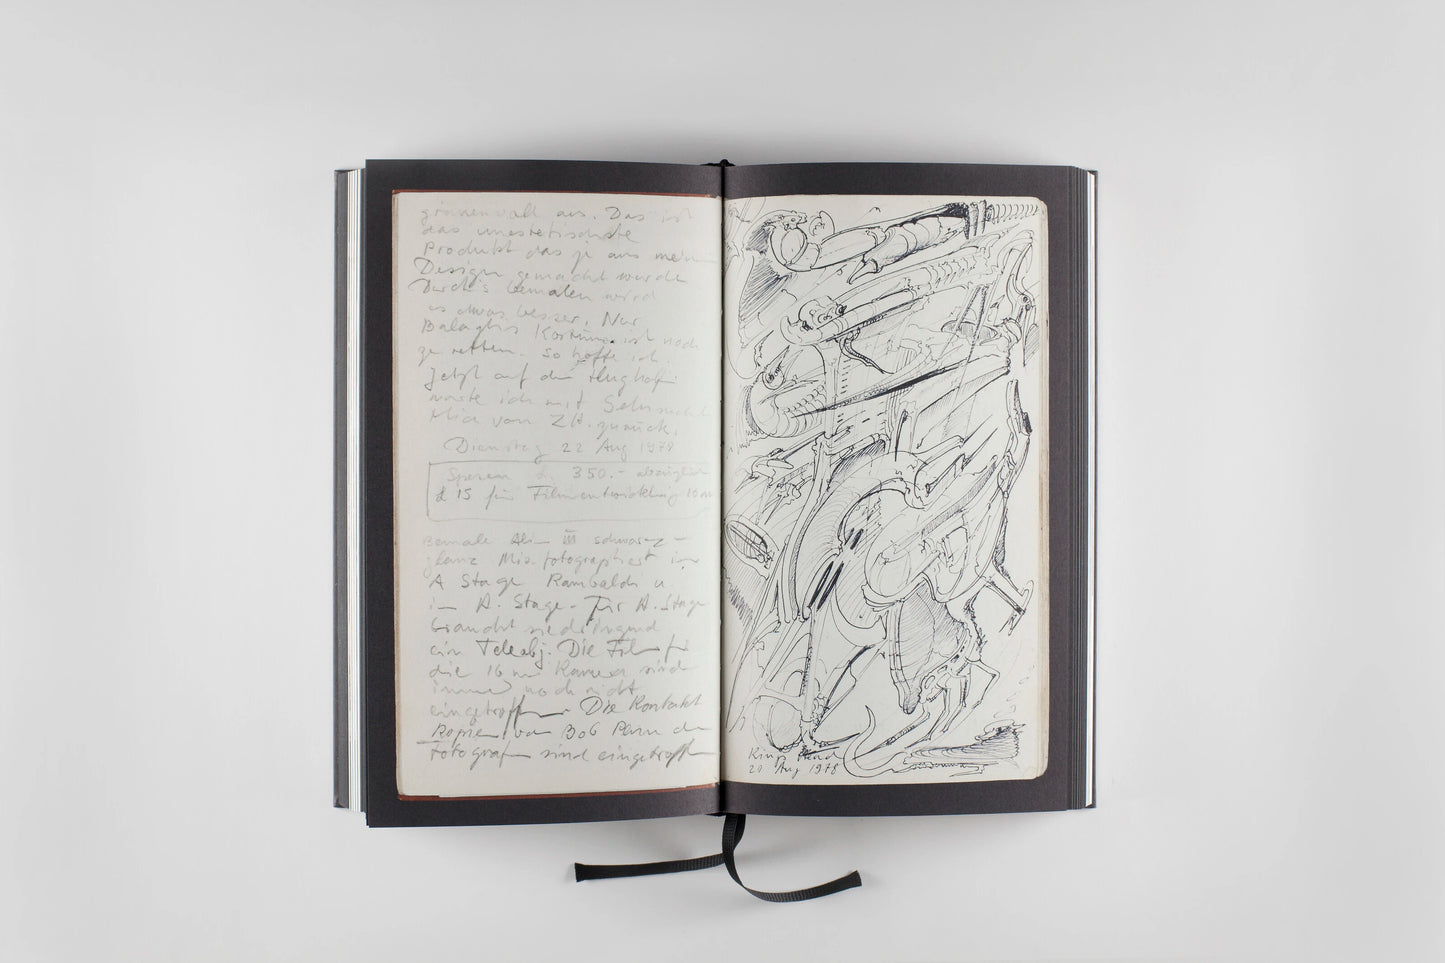 aus. Das ist
das unestetischste
Produkt das je aus mein
Design gemacht wurde
Durch's bemalen wird
es etwas besser. Nur
Kostüm ist noch
zu retten. So hoffe ich.
Jetzt auf dem Flughafen
warte ich mit Sehnsucht
Mia von ZH. zurück.
Dienstag 22 Aug 1978
Spesen £. 350.- abzüglich
£ 15 für Filmentwicklung
Bemale Alien III schwarz-
glanz Mia fotographiert im
A Stage Rambaldi u.
in H. Stage. Für H. Stage
braucht sie dringend
ein Teleobj. Die Filme für
die 16 mm Kamera sind
immer noch nicht
eingetroffen. Die Kontakt
Kopien von Bob Penn dem
Fotografen sind eingetroffen
20 Aug 1978